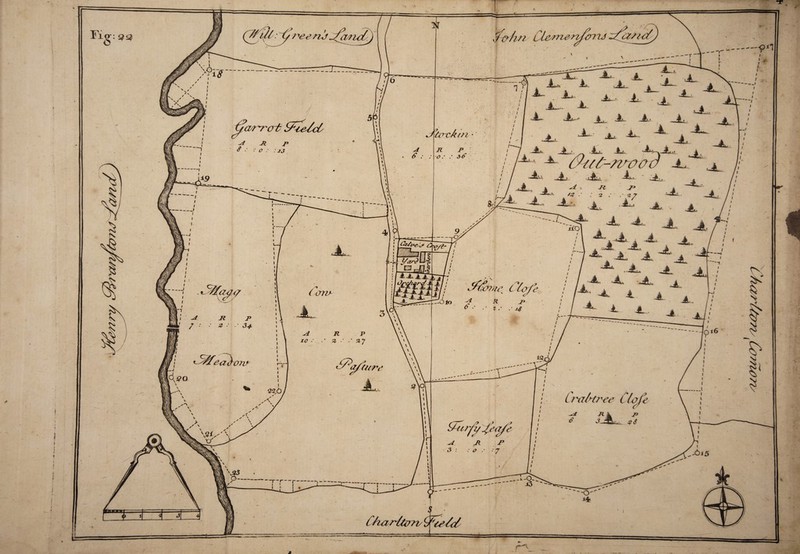 Fig: 22
N
Will: Greens Land
John Clemensons Land
17
18
6
7
Garrot Field
5
Stockin
A R P
8 : 0 : 23
A R P
6 : 0 : 36
Out-wood
A R P
12 : 2 : 27
19
8
4
9
11
Calve's Croft
Yard
Henry Branstons Land
Magg
Cow
Home Close
10
3
A R P
7 : 2 : 34
A R P
10 : 2 : 27
A R P
6 : 2 : 18
Charlton Comon
16
Meadow
Pasture
12
20
22
2
Crabtree Close
A R P
6 3 28
Fursy Lease
A R P
3 : 0 : 7
21
15
23
13
14
S
Charlton Field